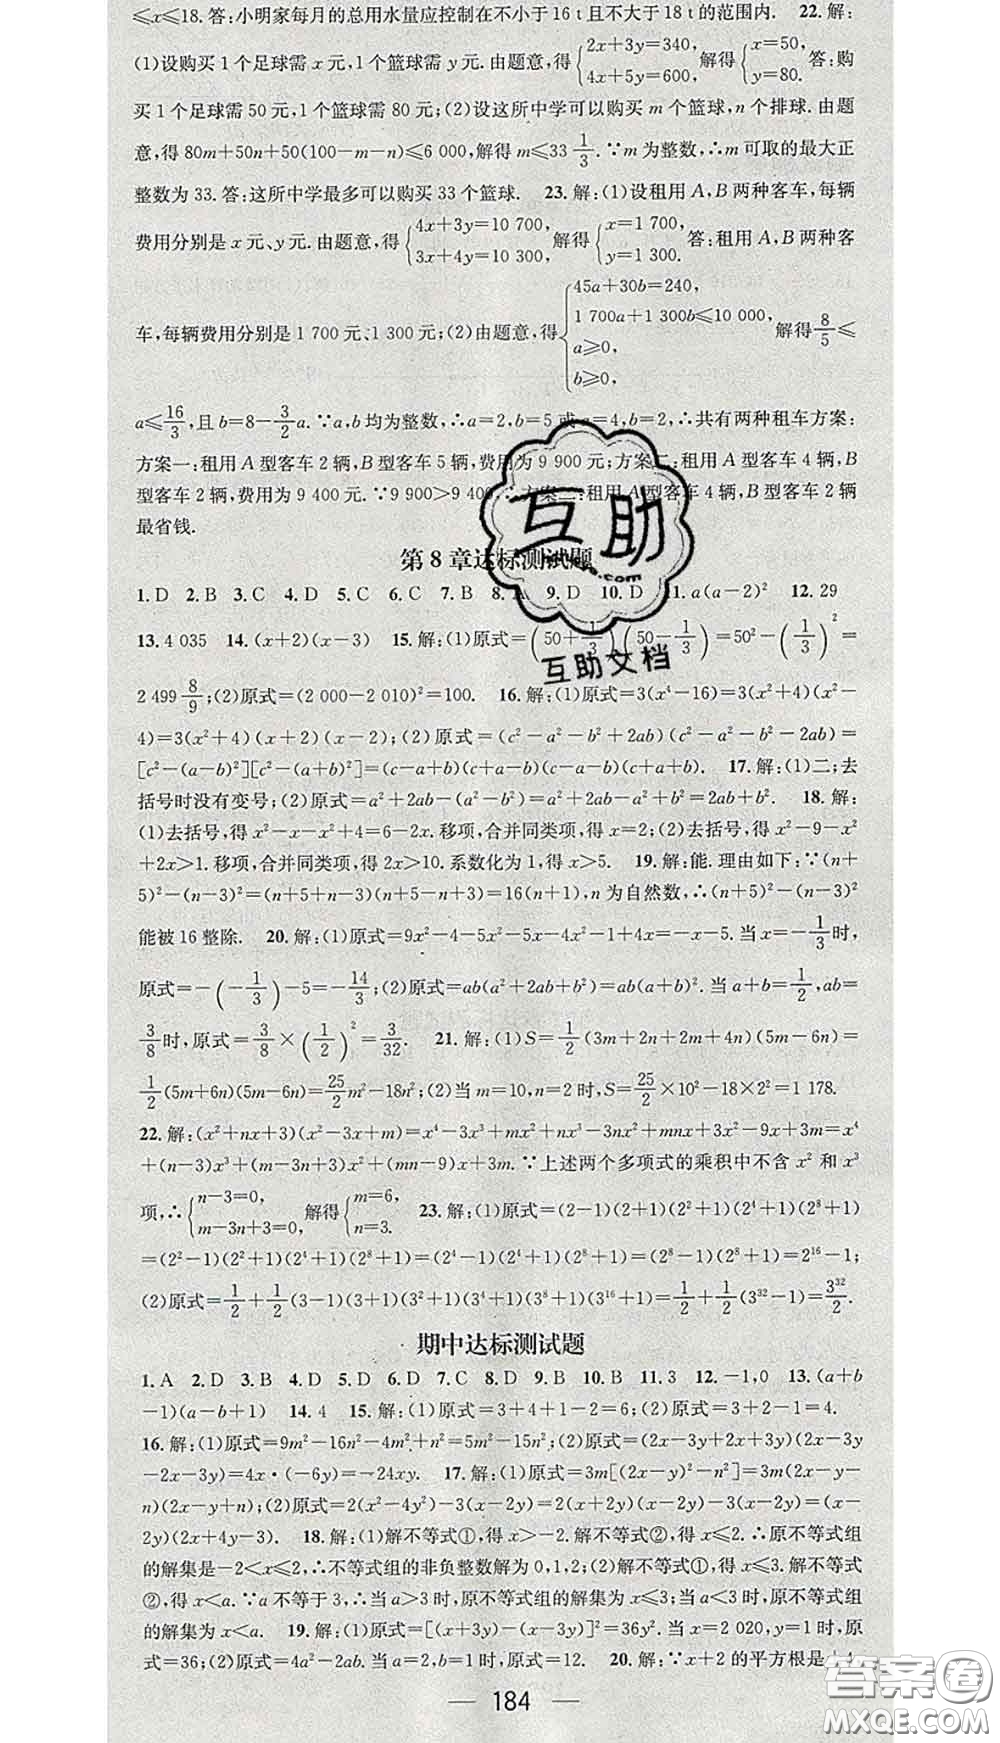 ≤x≤18.答:小明家每月的总用水量应控制在不小于16 t且不大于18 t的范围内. 22.解:
(1)设购买1个足球需x元,1个篮球需y元.由题意,得{2x+3y=340, 4x+5y=600,解得{x=50, y=80.答:购
买1个足球需50元,1个篮球需80元;(2)设这所中学可以购买m个篮球,n个排球.由题
意,得80m+50n+50(100-m-n)≤6 000,解得m≤33 1/3.∵m为整数,∴m可取的最大正
整数为33.答:这所中学最多可以购买33个篮球. 23.解:(1)设租用A,B两种客车,每辆
费用分别是x元、y元.由题意,得{4x+3y=10 700, 3x+4y=10 500,解得{x=1 700, y=1 300.答:租用A,B两种客
车,每辆费用分别是1 700元、1 300元;(2)由题意,得{45a+30b=240, 1 700a+1 300b≤10 000, a≥0, b≥0,解得8/5≤
a≤16/3,且b=8-3/2a.∵a,b均为整数,∴a=2,b=5或a=4,b=2,∴共有两种租车方案:
方案一:租用A型客车2辆,B型客车5辆,费用为9 900元;方案二:租用A型客车4辆,B
型客车2辆,费用为9 400元.∵9 900>9 400,∴方案二:租用A型客车4辆,B型客车2辆
最省钱.
第8章达标测试题
1.D 2.B 3.C 4.D 5.C 6.C 7.B 8.A 9.D 10.D 11.a(a-2)² 12.29
13.4 035 14.(x+2)(x-3) 15.解:(1)原式=(50+1/3)(50-1/3)=50²-(1/3)²=
2 499 8/9;(2)原式=(2 000-2 010)²=100. 16.解:(1)原式=3(x⁴-16)=3(x²+4)(x²-
4)=3(x²+4)(x+2)(x-2);(2)原式=(c²-a²-b²+2ab)(c²-a²-b²-2ab)=
[c²-(a-b)²][c²-(a+b)²]=(c-a+b)(c+a-b)(c-a-b)(c+a+b). 17.解:(1)二;去
括号时没有变号;(2)原式=a²+2ab-(a²-b²)=a²+2ab-a²+b²=2ab+b². 18.解:
(1)去括号,得x²-x-x²+4=6-2x.移项,合并同类项,得x=2;(2)去括号,得x²-9-x²
+2x>1.移项,合并同类项,得2x>10.系数化为1,得x>5. 19.解:能.理由如下:∵(n+
5)²-(n-3)²=(n+5+n-3)(n+5-n+3)=16(n+1),n为自然数,∴(n+5)²-(n-3)²
能被16整除. 20.解:(1)原式=9x²-4-5x²-5x-4x²-1+4x=-x-5.当x=-1/3时,
原式=-(-1/3)-5=-14/3;(2)原式=ab(a²+2ab+b²)=ab(a+b)².当a+b=1/2,ab=
3/8时,原式=3/8×(1/2)²=3/32. 21.解:(1)S=1/2(3m+2n+2m+4n)(5m-6n)=
1/2(5m+6n)(5m-6n)=25/2m²-18n²;(2)当m=10,n=2时,S=25/2×10²-18×2²=1 178.
22.解:(x²+nx+3)(x²-3x+m)=x⁴-3x³+mx²+nx³-3nx²+mnx+3x²-9x+3m=x⁴
+(n-3)x³+(m-3n+3)x²+(mn-9)x+3m.∵上述两个多项式的乘积中不含x²和x³
项,∴{n-3=0, m-3n+3=0,解得{m=6, n=3. 23.解:(1)原式=(2-1)(2+1)(2²+1)(2⁴+1)(2⁸+1)
=(2²-1)(2²+1)(2⁴+1)(2⁸+1)=(2⁴-1)(2⁴+1)(2⁸+1)=(2⁸-1)(2⁸+1)=2¹⁶-1;
(2)原式=1/2+1/2(3-1)(3+1)(3²+1)(3⁴+1)(3⁸+1)(3¹⁶+1)=1/2+1/2(3³²-1)=3³²/2.
期中达标测试题
1.A 2.D 3.B 4.D 5.D 6.D 7.C 8.D 9.B 10.B 11.3 12.-1,0 13.(a+b
-1)(a-b+1) 14.4 15.解:(1)原式=3+4+1-2=6;(2)原式=3+2-1=4.
16.解:(1)原式=9m²-16n²-4m²+n²=5m²-15n²;(2)原式=(2x-3y+2x+3y)(2x-3y
-2x-3y)=4x·(-6y)=-24xy. 17.解:(1)原式=3m[(2x-y)²-n²]=3m(2x-y-
n)(2x-y+n);(2)原式=2(x²-4y²)-3(x-2y)=2(x+2y)(x-2y)-3(x-2y)=(x-
2y)(2x+4y-3). 18.解:(1)解不等式①,得x>-2.解不等式②,得x≤2.∴原不等式组
的解集是-2<x≤2,∴不等式组的非负整数解为0,1,2;(2)解不等式①,得x≤3.解不等式
②,得x<a.∵a不等于3,∴当a>3时,原不等式组的解集为x≤3;当a<3时,原不等式组
的解集为x<a. 19.解:(1)原式=[(x+3y)-(x-3y)]²=36y².当x=2 020,y=1时,原
式=36;(2)原式=4a²-2ab.当a=2,b=1时,原式=12. 20.解:∵x+2的平方根是±4,
184
互助
互助文档
答案圈
MXQE.COM